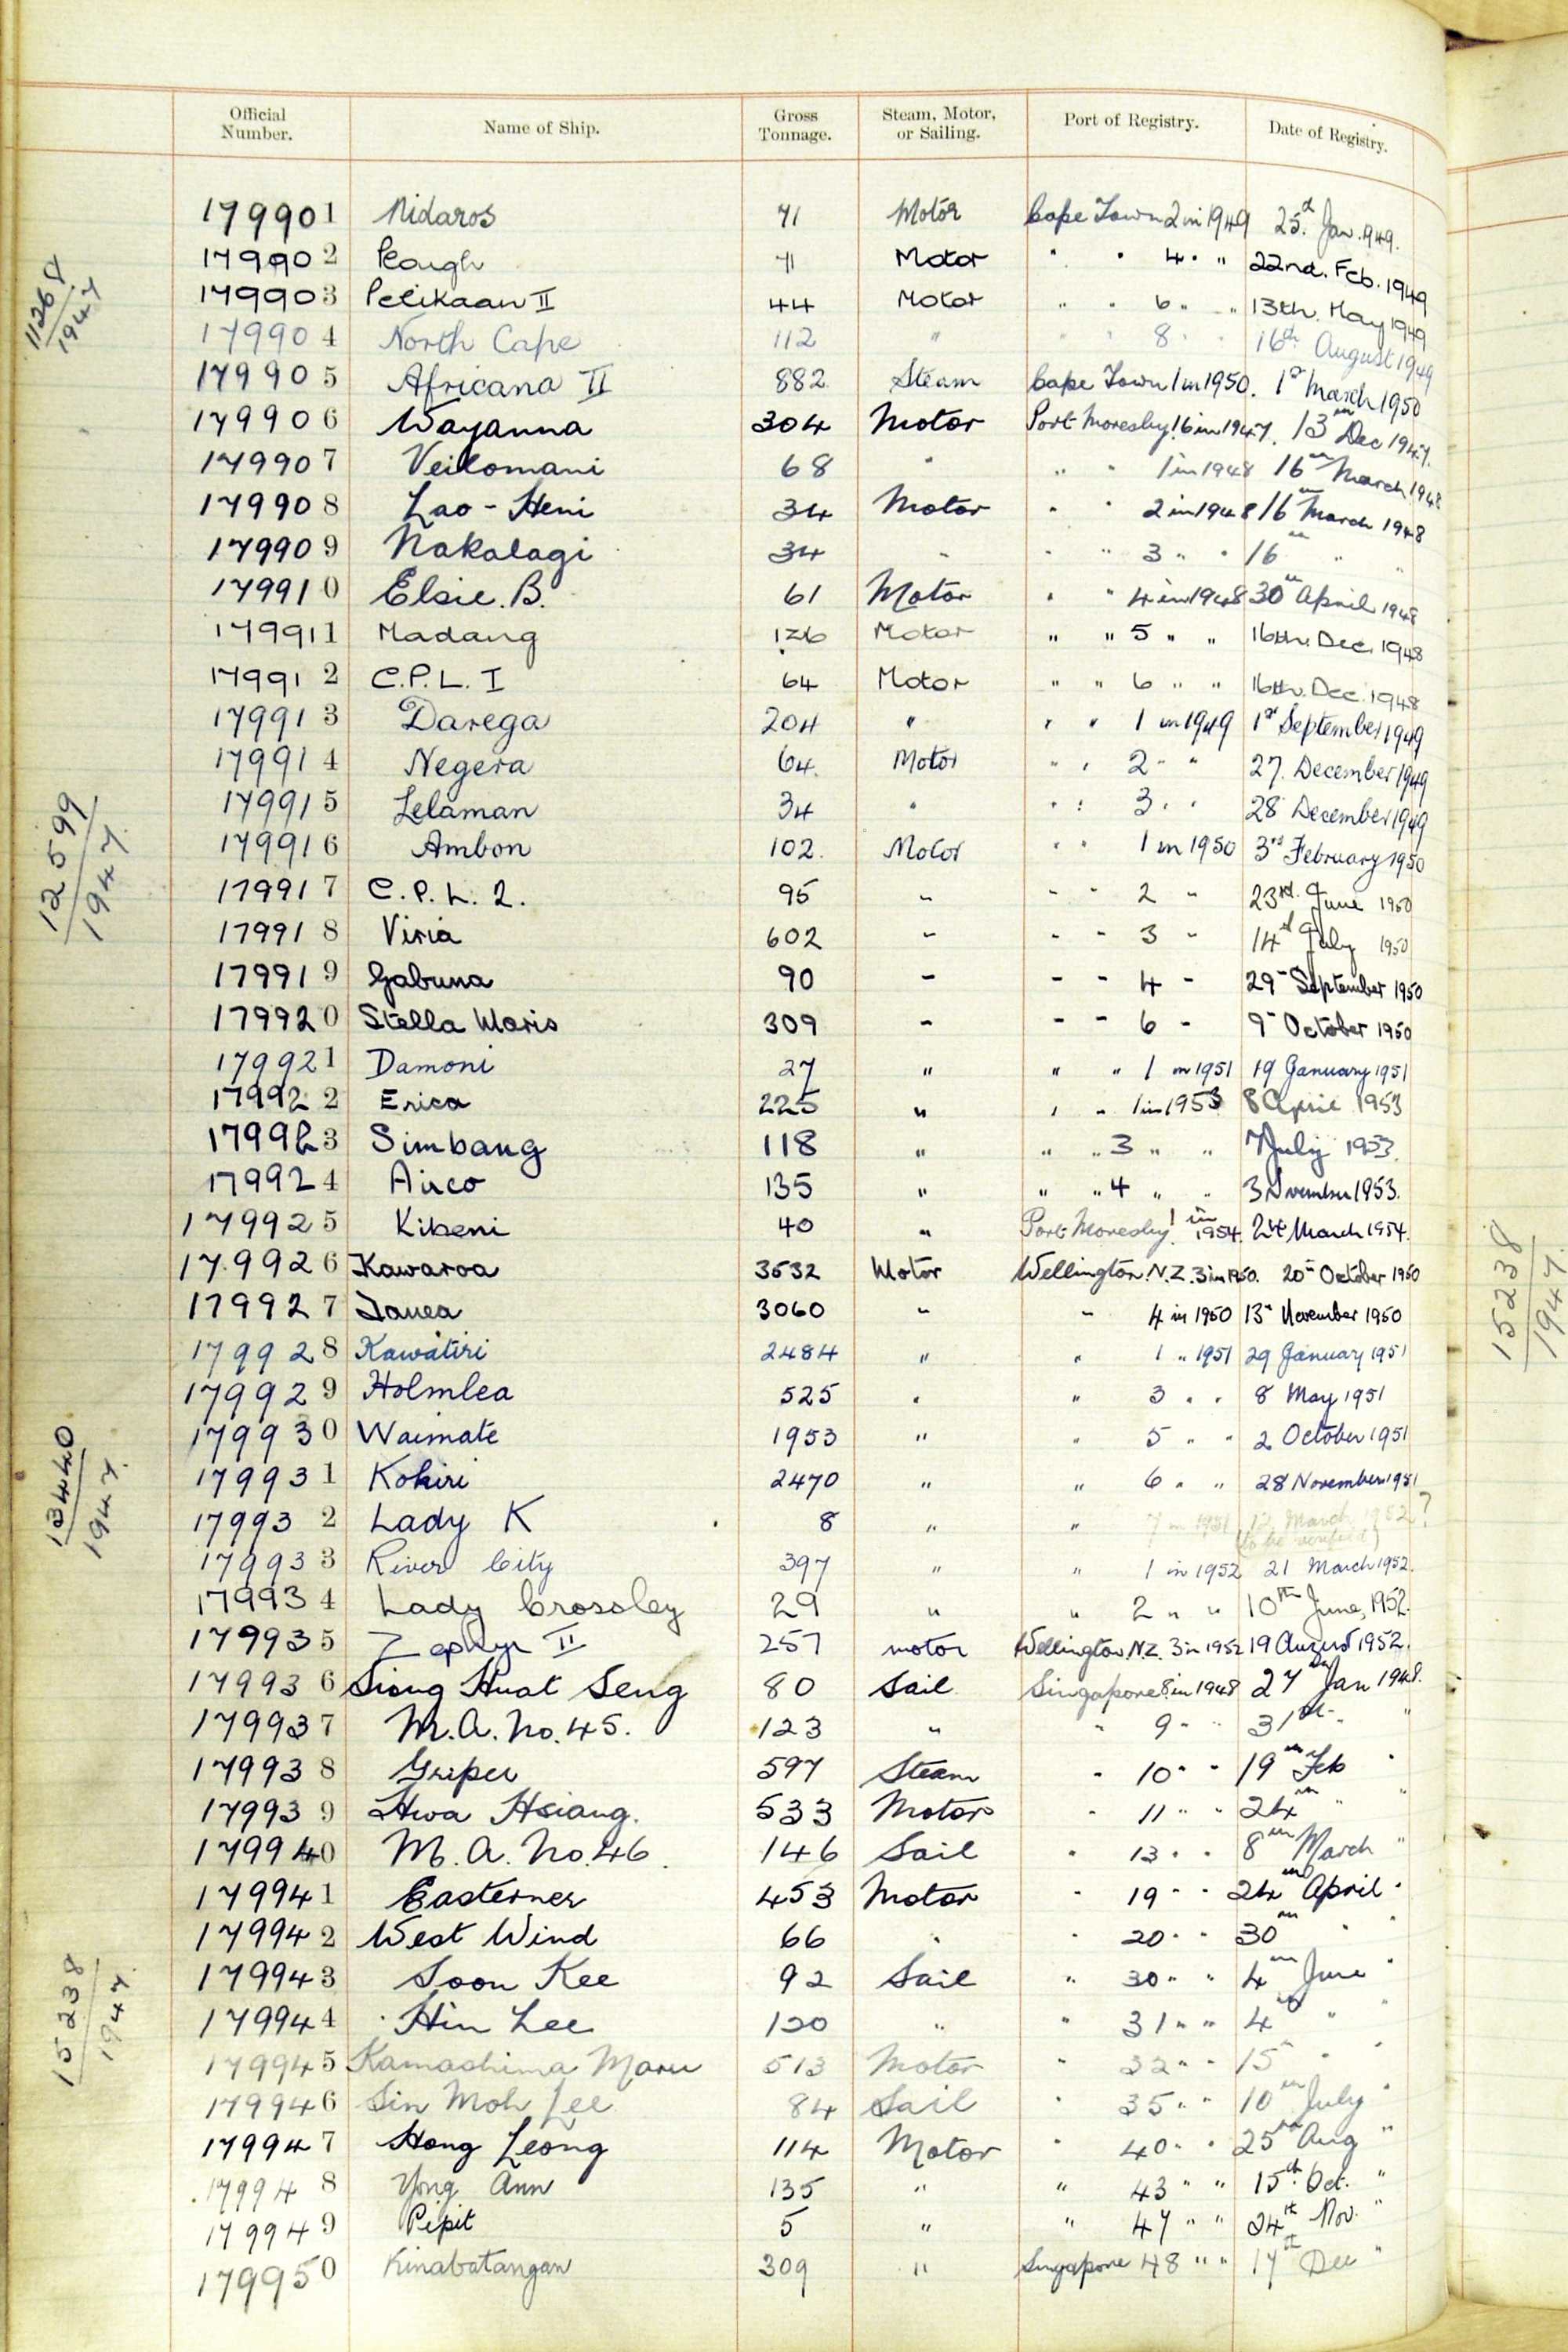 Official Number. Name of Ship. Gross Tonnage. Steam, Motor, or Sailing. Port of Registry. Date of Registry.
179901 Nidaros 71 Motor Cape Town 2 in 1949 25th Jan. 949.
179902 Rough 71 Motor " " 4 " " 22nd. Feb. 1949
179903 Pelikaan II 44 Motor " " 6 " " 13th. May 1949
179904 North Cape 112 " " " 8 " " 16th August 1949
179905 Africana II 882 Steam Cape Town 1 in 1950. 1st March 1950
179906 Wayanna 304 Motor Port Moresby 16 in 1947. 13th Dec 1947.
179907 Veilomani 68 " " " 1 in 1948 16th March 1948
179908 Lao-Heni 34 Motor " " 2 in 1948 16th March 1948
179909 Nakalagi 34 " " " 3 " " 16th " "
179910 Elsie. B. 61 Motor " " 4 in 1948 30th April 1948
179911 Madang 126 Motor " " 5 " " 16th. Dec. 1948
179912 C.P.L. I 64 Motor " " 6 " " 16th. Dec. 1948
179913 Darega 204 " " " 1 in 1949 1st September 1949
179914 Negera 64. Motor " " 2 " " 27. December 1949
179915 Lelaman 34 " " " 3 " " 28 December 1949
179916 Ambon 102. Motor " " 1 in 1950 3rd February 1950
179917 C.P.L. 2. 95 " " " 2 " 23rd. June 1950
179918 Viria 602 " " " 3 " 14th July 1950
179919 Gabuna 90 " " " 4 " 29th September 1950
179920 Stella Maris 309 " " " 6 " 9th October 1950
179921 Damoni 27 " " " 1 in 1951 19 January 1951
179922 Erica 225 " " " 1 in 1953 8 April 1953
179923 Simbang 118 " " " 3 " " 7 July 1953.
179924 Airco 135 " " " 4 " " 3 November 1953.
179925 Kibeni 40 " Port Moresby 1 in 1954. 24 March 1954.
179926 Kawaroa 3532 Motor Wellington. N.Z. 3 in 1950. 20th October 1950
179927 Tanea 3060 " " 4 in 1950 13th November 1950
179928 Kawatiri 2484 " " 1 " 1951 29 January 1951
179929 Holmlea 525 " " 3 " " 8 May 1951
179930 Waimate 1953 " " 5 " " 2 October 1951
179931 Kokiri 2470 " " 6 " " 28 November 1951
179932 Lady K 8 " " 7 in 1951 12 March 1952?
(to be verified)
179933 River City 397 " " 1 in 1952 21 March 1952.
179934 Lady Crossley 29 " " 2 " " 10th June, 1952.
179935 Zephyr II 257 motor Wellington N.Z. 3 in 1952 19 August 1952.
179936 Siong Huat Seng 80 Sail Singapore 8 in 1948 27th Jan 1948.
179937 M.A. No. 45. 123 " " 9 " " 31st " "
179938 Griper 597 Steam " 10 " " 19th Feb "
179939 Hwa Hsiang. 533 Motor " 11 " " 24th " "
179940 M.A. No. 46. 146 Sail " 13 " " 8th March "
179941 Easterner 453 Motor " 19 " " 24th April "
179942 West Wind 66 " " 20 " " 30th " "
179943 Soon Kee 92 Sail " 30 " " 4th June "
179944 Hin Lee 120 " " 31 " " 4th " "
179945 Kamashima Maru 513 Motor " 32 " " 15 " "
179946 Sin Moh Lee 84 Sail " 35 " " 10th July "
179947 Hong Leong 114 Motor " 40 " " 25th Aug "
179948 Yong Ann 135 " " 43 " " 15th Oct. "
179949 Pipit 5 " " 47 " " 24th Nov. "
179950 Kinabatangan 309 " Singapore 48 " " 17th Dec "
11268
1947
12599
1947
13440
1947.
15238
1947.
15238
1947.